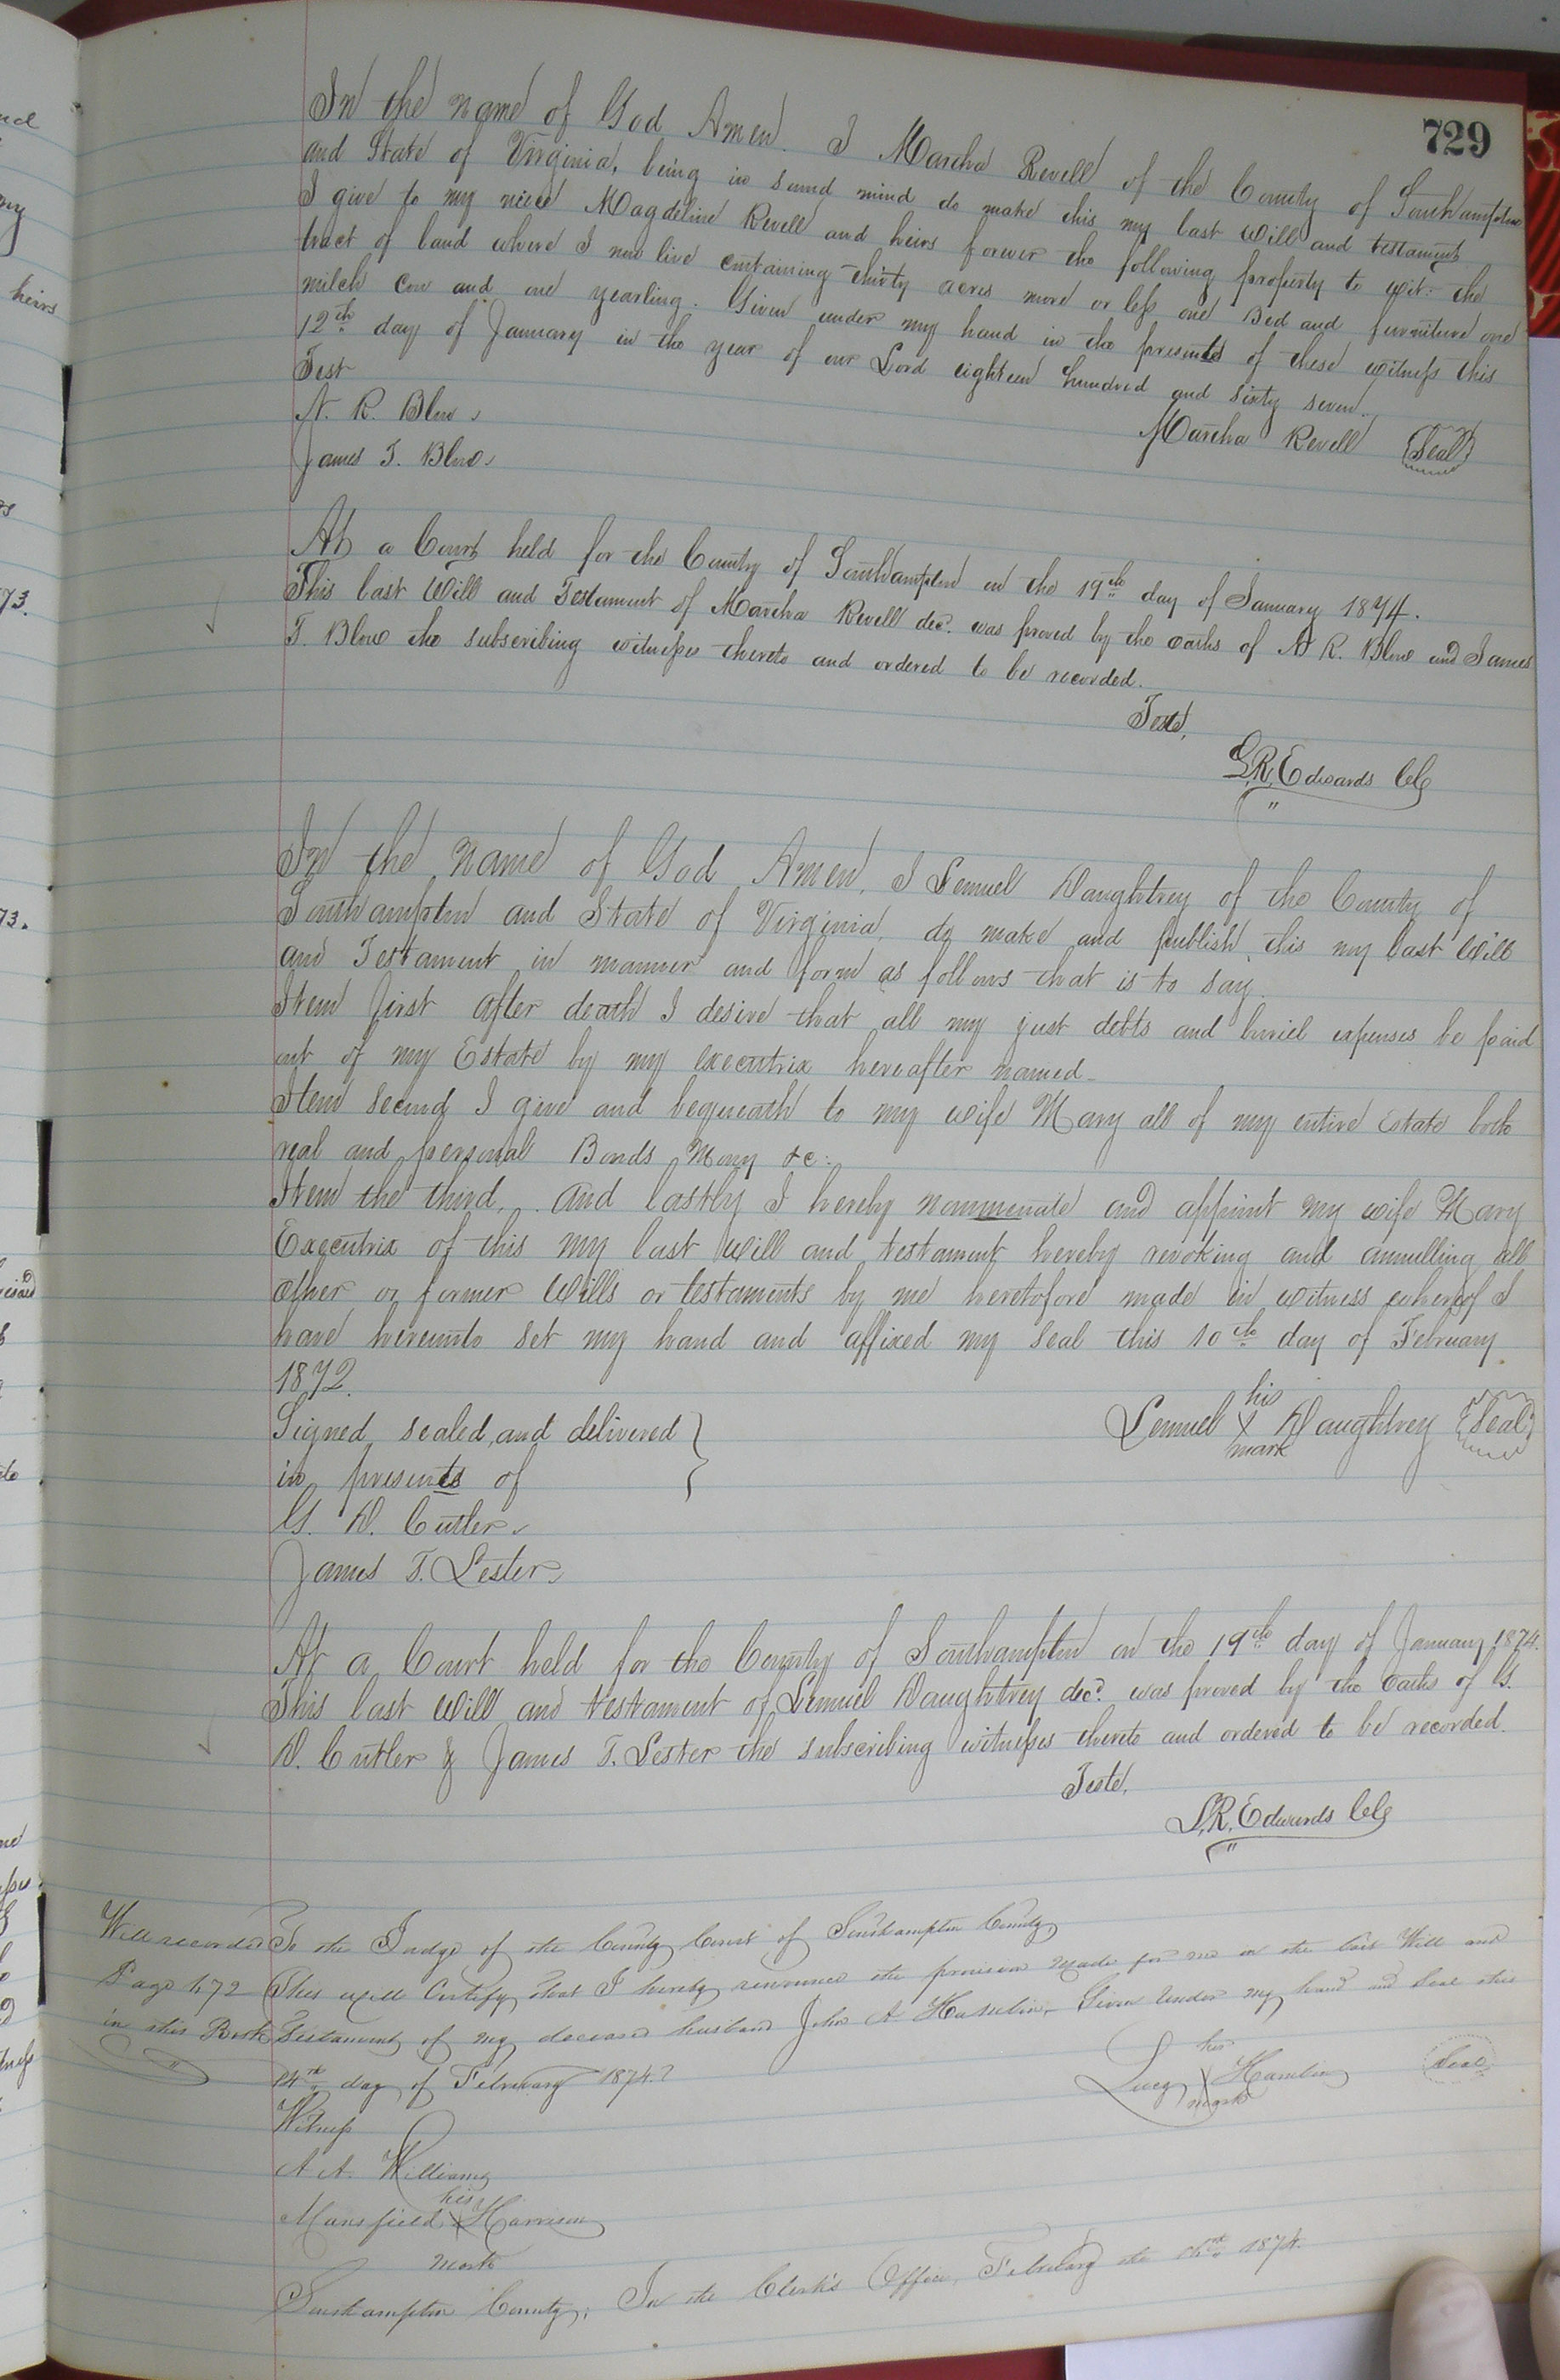 729
In the name of God Amen. I Martha Revell of the County of Southampton
and State of Virginia, being in sound mind do make this my last Will and testament
I give to my niece Magdeline Revell and heirs forever the following property to wit: the
tract of land where I now live containing thirty acres more or less one Bed and furniture one
milch cow and one yearling. Given under my hand in the presents of these witness this
12th day of January in the year of our Lord eighteen hundred and sixty seven.
Test
N. R. Blow
Martha Revell {Seal}
James T. Blow
At a Court held for the County of Southampton on the 19th day of January 1874.
This last Will and Testament of Martha Revell decd. was proved by the oaths of N R. Blow and James
T. Blow the subscribing witnesses thereto and ordered to be recorded.
Teste,
L.R. Edwards Clk
In the name of God Amen, I Lemuel Daughtrey of the County of
Southampton and State of Virginia, do make and publish this my last Will
and Testament in manner and form as follows that is to say.
Item first After death I desire that all my just debts and buriel expenses be paid
out of my Estate by my executrix hereafter named
Item second I give and bequeath to my wife Mary all of my entire Estate both
real and personal Bonds Mony &c.
Item the third, and lastly I hereby nommenate and appoint my wife Mary
Executrix of this my last Will and testament hereby revoking and annulling all
other or former Wills or testaments by me heretofore made in witness whereof I
have hereunto set my hand and affixed my seal this 10th day of February
1872.
his
Signed sealed, and delivered } Lemuel X Daughtrey {Seal}
mark
in presents of
G. D. Cutler
James T. Lester
At a Court held for the County of Southampton on the 19th day of January 1874.
This last Will and testament of Lemuel Daughtrey decd. was proved by the oaths of G.
D. Cutler & James T. Lester the subscribing witnesses thereto and ordered to be recorded.
Teste,
L.R. Edwards Clk
Will recorded To the Judge of the County Court of Southampton County
Page 672 This will Certify that I hereby renounce the provision made for me in the last Will and
in this Book Testament of my deceased husband John A Hamlin. Given under my hand and Seal this
14th day of February 1874.
her
Lucy X Hamlin Seal
mark
Witness
A A. Williams
his
Mansfield X Harrison
mark
Southampton County; In the Clerk's Office, February the 1874.